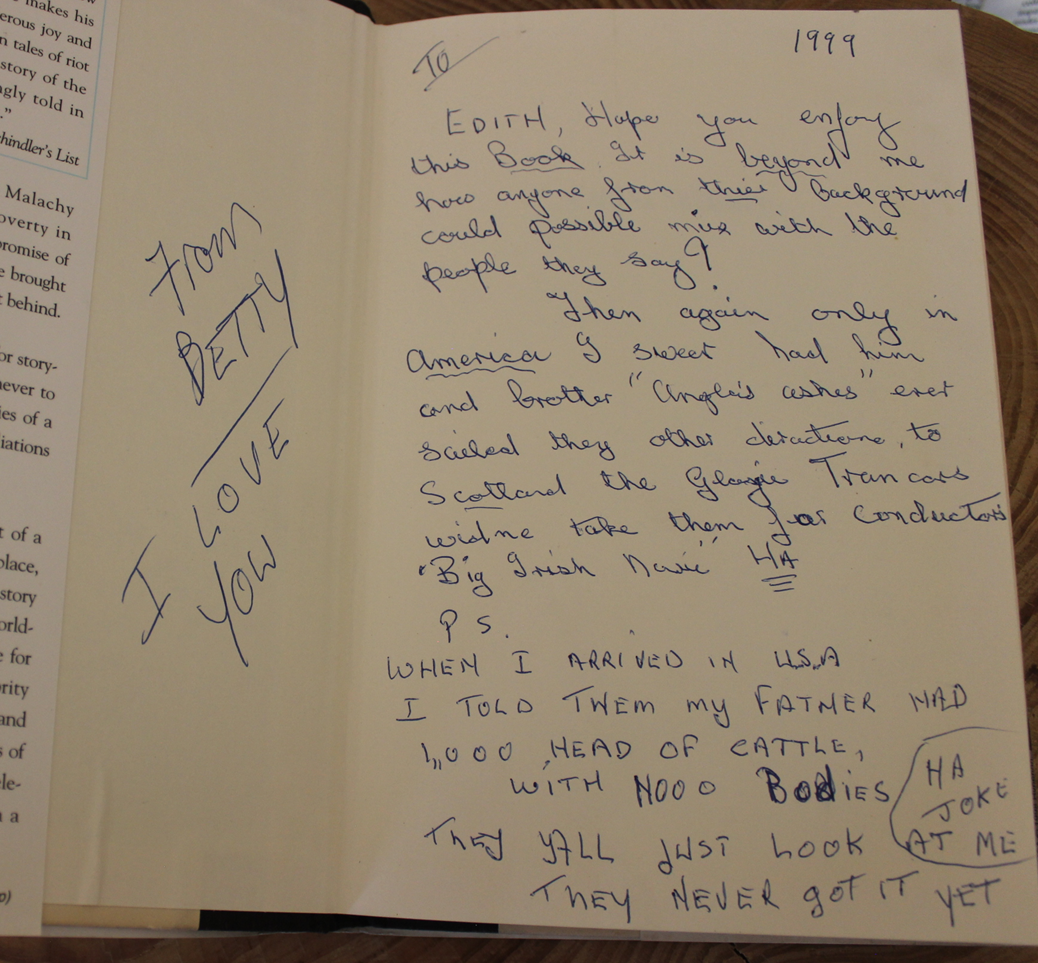 makes his
erous joy and
n tales of riot
story of the
ngly told in
."
chindler's List
Malachy
overty in
promise of
e brought
t behind.
or story-
never to
ies of a
iations
t of a
place,
story
orld-
e for
rity
and
s of
ele-
n a
From
BETTY
I LOVE
YOU
TO
1999
EDITH, Hope you enjoy
this Book. It is beyond me
how anyone from thier background
could possible mix with the
people they say?
Then again only in
America I sweer had him
and brotter "Angles ashes" ever
sailed they other diractione, to
Scotland the Glasgie Trancars
widne take them for Conductors
"Big Irish Navie" HA
P S.
WHEN I ARRIVED IN U.S.A
I TOLD THEM my FATHER HAD
1,,000 HEAD OF CATTLE,
WITH NOOO BODIES
HA
JOKE
THEY YALL JUST LOOK AT ME
THEY NEVER GOT IT YET